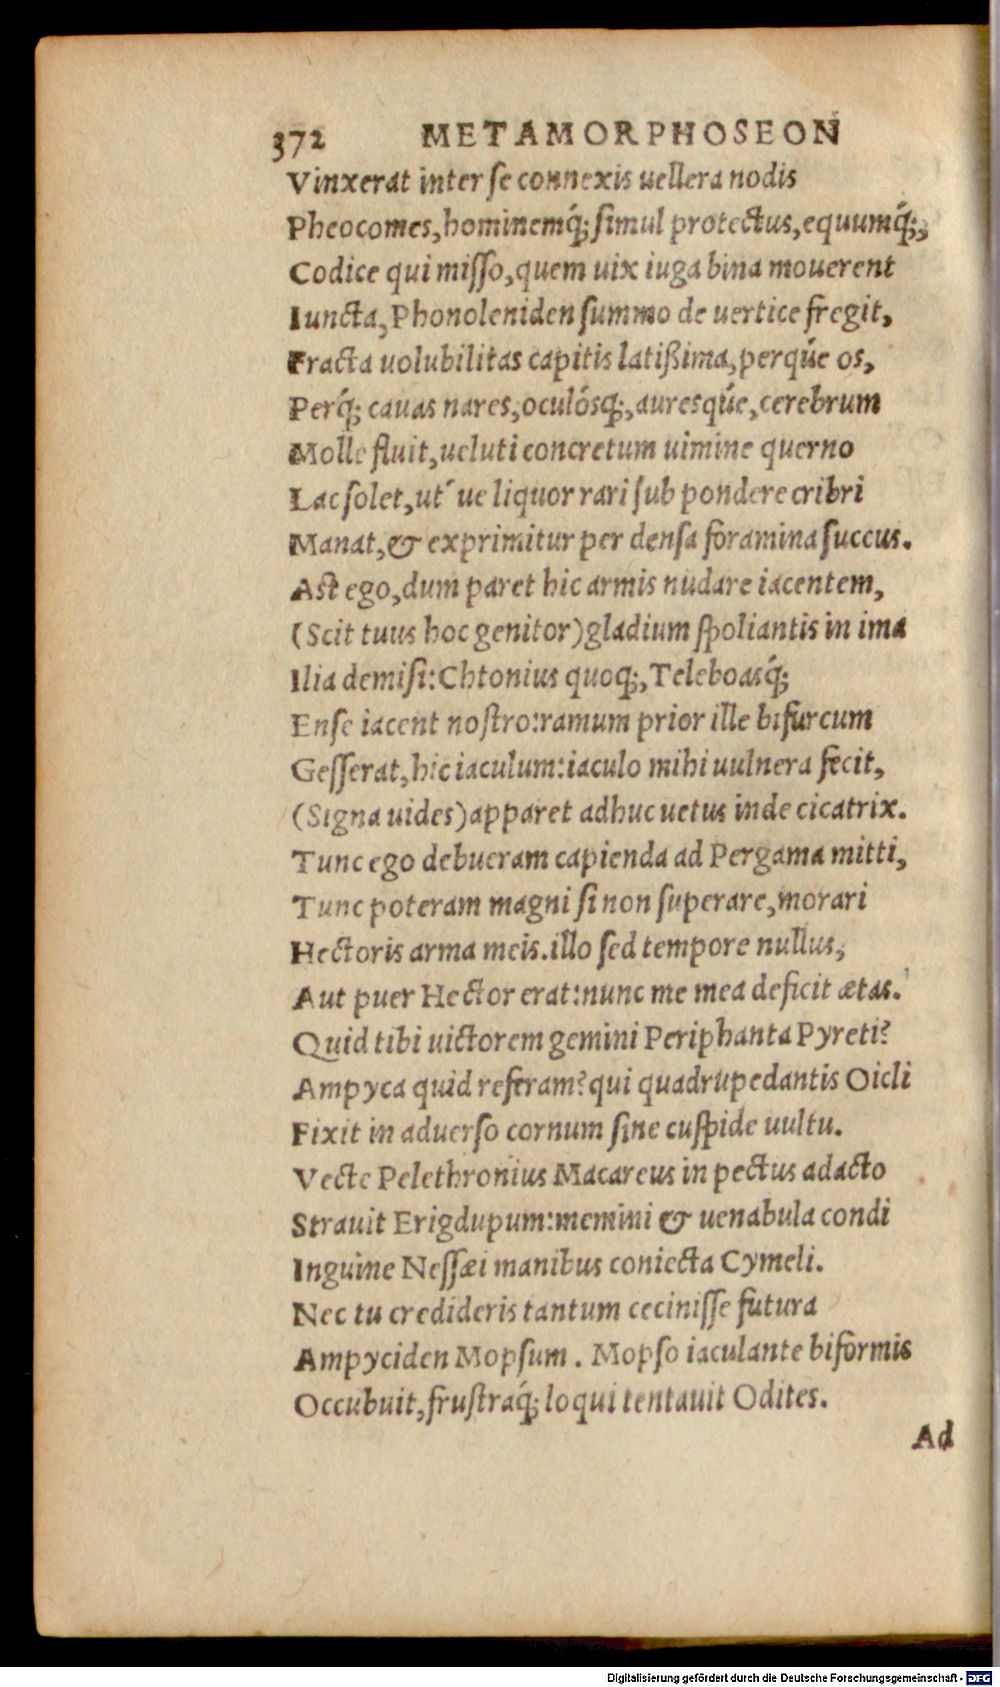 372 METAMORPHOSEON
Vinxerat inter ſe connexis uellera nodis
Pheocomes, hominemq́; ſimul protectus, equumq́;,
Codice qui miſſo, quem uix iuga bina mouerent
Iuncta, Phonoleniden ſummo de uertice fregit,
Fracta uolubilitas capitis latißima, perqúe os,
Perq́; cauas nares, oculósq;, auresqúe, cerebrum
Molle fluit, ueluti concretum uimine querno
Lac ſolet, ut´ ue liquor rari ſub pondere cribri
Manat, & exprimitur per denſa foramina ſuccus.
Aſt ego, dum paret hic armis nudare iacentem,
(Scit tuus hoc genitor) gladium ſpoliantis in ima
Ilia demiſi: Chtonius quoq;, Teleboasq́;
Enſe iacent noſtro: ramum prior ille bifurcum
Geſſerat, hic iaculum: iaculo mihi uulnera fecit,
(Signa uides) apparet adhuc uetus inde cicatrix.
Tunc ego debueram capienda ad Pergama mitti,
Tunc poteram magni ſi non ſuperare, morari
Hectoris arma meis. illo ſed tempore nullus,
Aut puer Hector erat: nunc me mea deficit ætas.
Quid tibi uictorem gemini Periphanta Pyreti?
Ampyca quid referam? qui quadrupedantis Oicli
Fixit in aduerſo cornum ſine cuſpide uultu.
Vecte Pelethronius Macareus in pectus adacto
Strauit Erigdupum: memini & uenabula condi
Inguine Neſſæi manibus coniecta Cymeli.
Nec tu credideris tantum ceciniſſe futura
Ampyciden Mopſum. Mopſo iaculante biformis
Occubuit, fruſtraq́; loqui tentauit Odites.
Ad
Digitalisierung gefördert durch die Deutsche Forschungsgemeinschaft - DFG